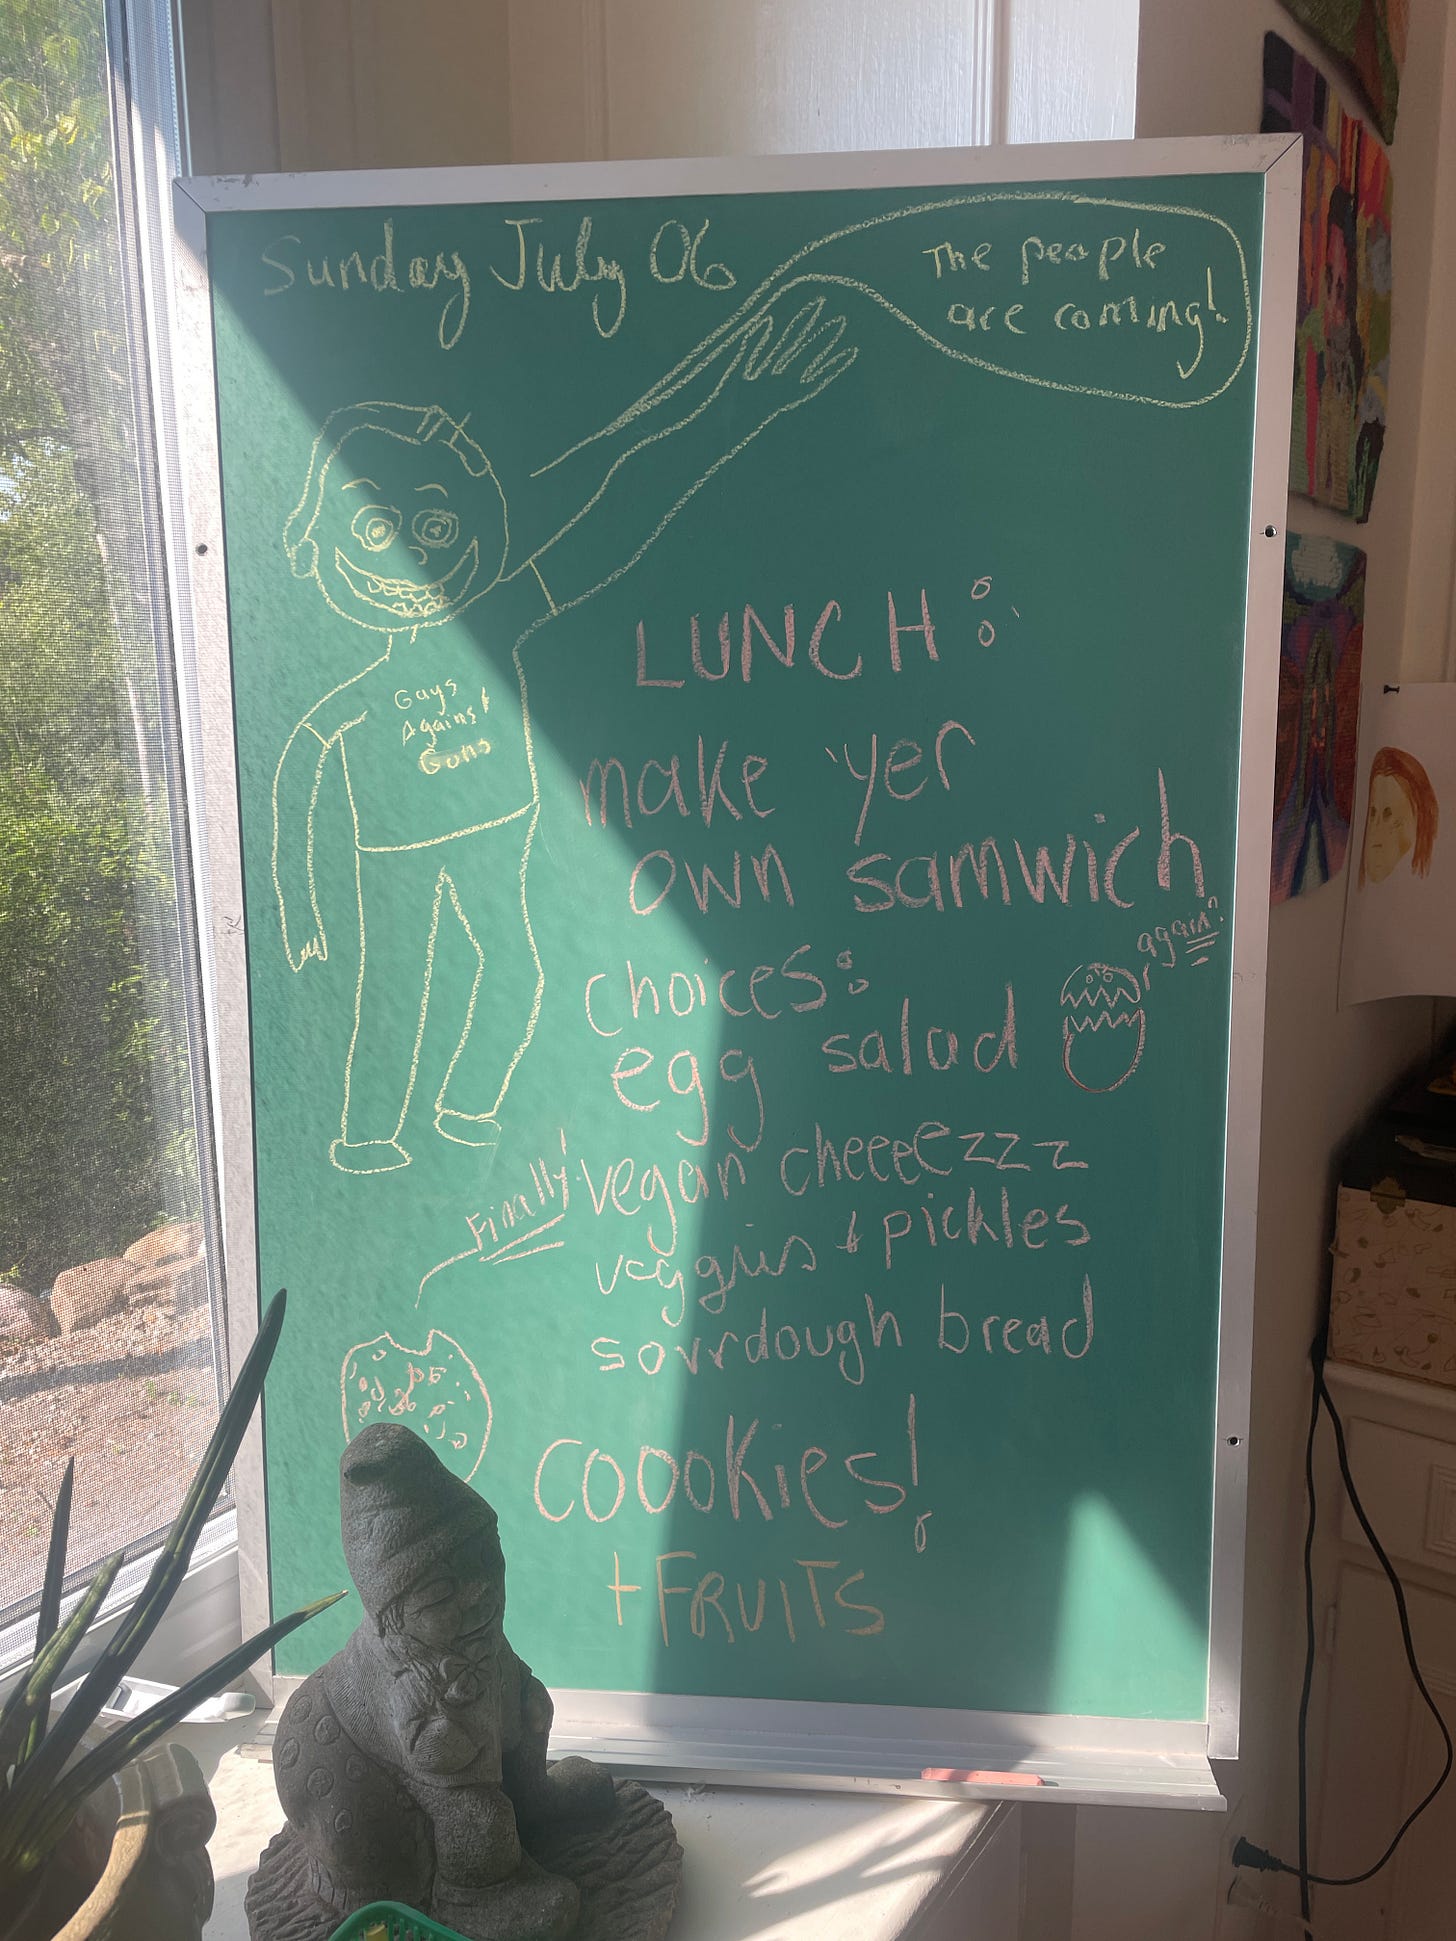 Sunday July 06
The people
are coming!
Gays
Against
Guns
LUNCH:
make 'yer
own samwich
again?
choices:
egg salad
Finally!
vegan cheeeezzz
veggies + pickles
sourdough bread
COOOKies!
+ FRUITS